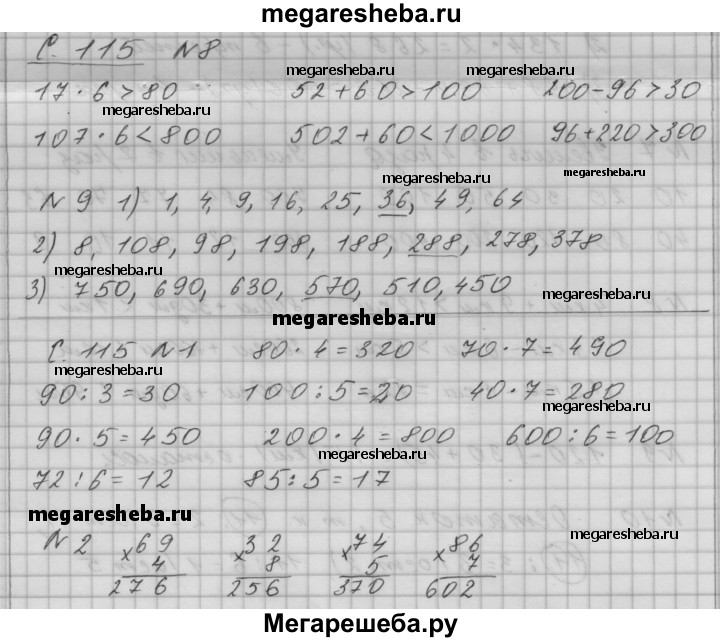 megaresheba.ru
С. 115 N8
megaresheba.ru megaresheba.ru
17 · 6 > 80 52 + 60 > 100 200 - 96 > 30
megaresheba.ru
107 · 6 < 800 502 + 60 < 1000 96 + 220 > 300
megaresheba.ru megaresheba.ru
N 9 1) 1, 4, 9, 16, 25, 36, 49, 64
2) 8, 108, 98, 198, 188, 288, 278, 378
megaresheba.ru
3) 750, 690, 630, 570, 510, 450
megaresheba.ru
megaresheba.ru
С. 115 N1 80 · 4 = 320 70 · 7 = 490
90 : 3 = 30 100 : 5 = 20 40 · 7 = 280
megaresheba.ru megaresheba.ru
90 · 5 = 450 200 · 4 = 800 600 : 6 = 100
megaresheba.ru
72 : 6 = 12 85 : 5 = 17
megaresheba.ru
megaresheba.ru
N 2 × 69 × 32 × 74 × 86
4 8 5 7
276 256 370 602
Мегарешеба.ру